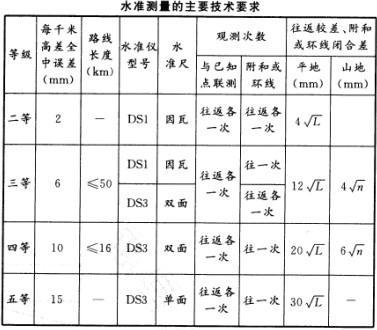 水准测量的主要技术要求
等级
每千米
高差全
中误差
(mm)
路线
长度
(km)
水准仪
型号
水
准
尺
观测次数
与已知
点联测
附和或
环线
往返较差、附和
或环线闭合差
平地
(mm)
山地
(mm)
二等
2
—
DS1
因瓦
往返各
一次
往返各
一次
4√L
三等
6
≤50
DS1
因瓦
往返各
一次
往一次
12√L
4√n
DS3
双面
往返各
一次
四等
10
≤16
DS3
双面
往返各
一次
往一次
20√L
6√n
五等
15
—
DS3
单面
往返各
一次
往一次
30√L
—